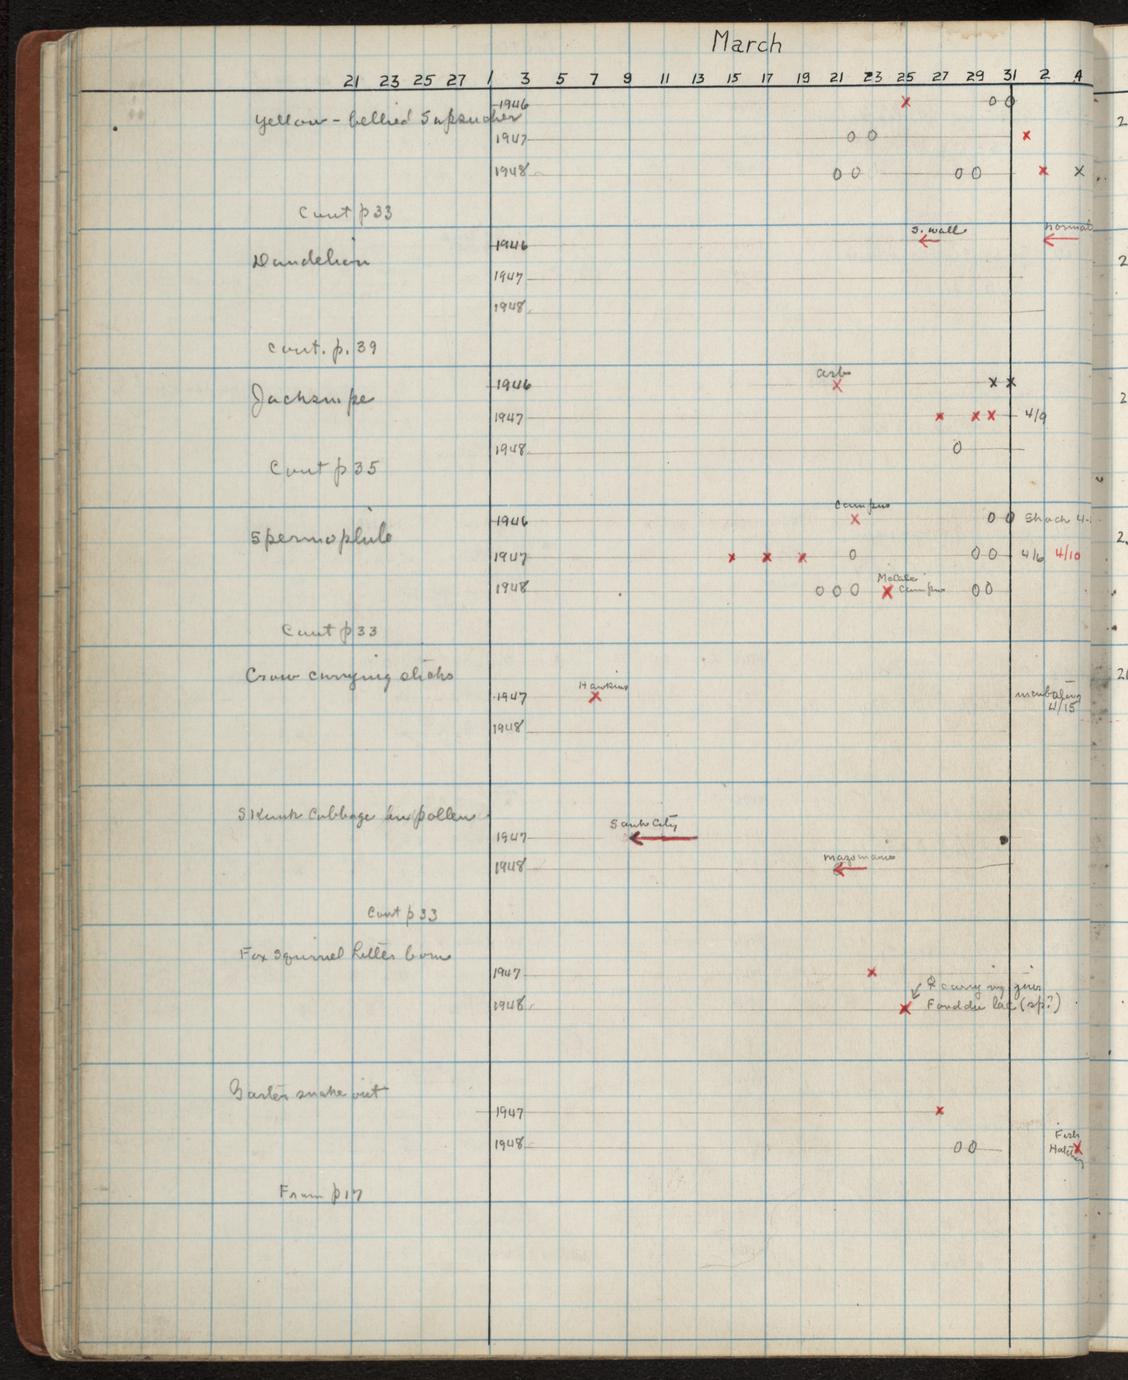 March
21 23 25 27 1 3 5 7 9 11 13 15 17 19 21 23 25 27 29 31 2 4
Yellow-bellied Sapsucker
1946 x 0 0
1947 0 0 x
1948 0 0 0 0 x x
Cont p 33
Dandelion
S. wall normal
1946
1947
1948
Cont. p. 39
Jacksnipe
arb
1946 x x x
1947 x x x 4/9
1948 0
Cont p 35
Spermophile
Campus
1946 x 0 0 Shack 4-
1947 x x x 0 0 0 4/6 4/10
McCabe
1948 0 0 0 x Campus 0 0
Cont p 33
Crow carrying sticks
Hawkins
1947 x incubating
4/15
1948
Skunk Cabbage has pollen
Sauk City
1947
Mazomanie
1948
Cont p 33
Fox Squirrel litter born
1947 x
♀ carrying
1948 x Fond du lac (sp?)
Garter snake out
1947 x
Fish
1948 0 0 Hatchery x
From p 17